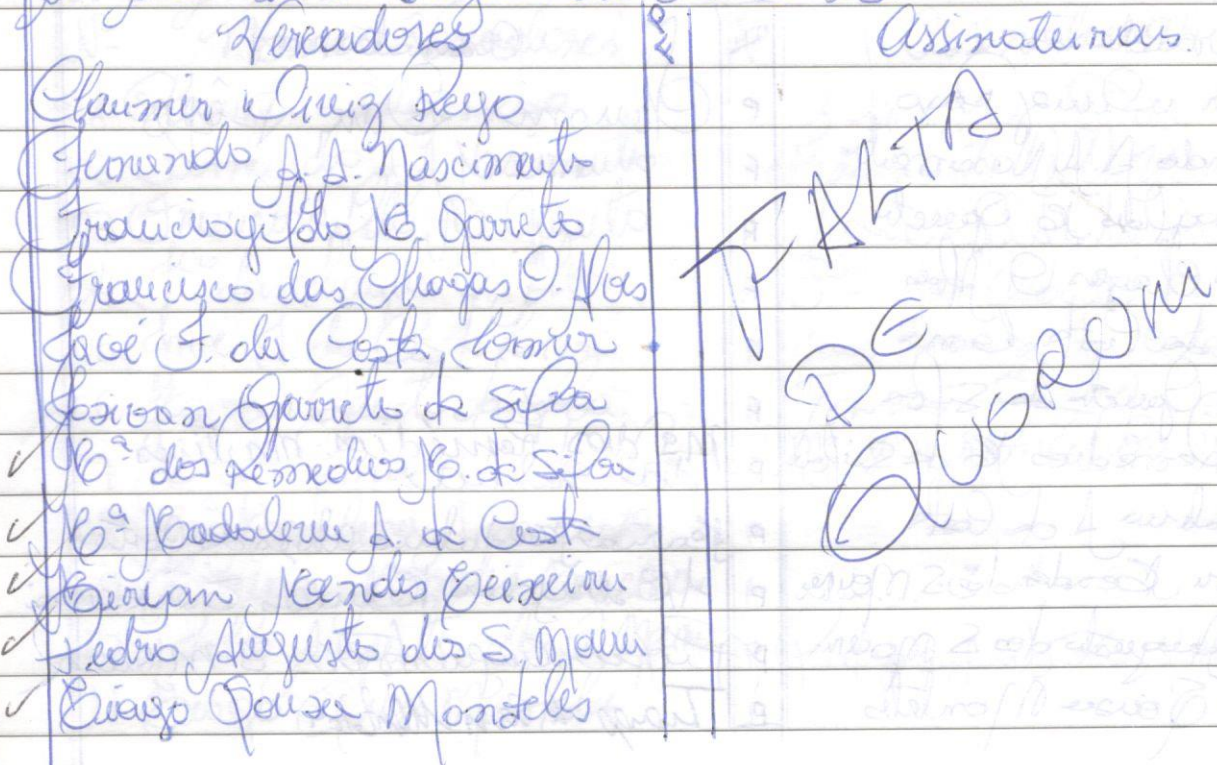 Vereadores F-P Assinaturas.
Claumir Diniz Rego
Fernando A. A. Nascimento
Garreto
Francisco das Chagas O. Alves
José F. da Costa
Josivan Garreto da Silva
✓ Mª dos Remédios M. da Silva
✓ Mª Madalena A. da Costa
✓ Mendes Teixeira
✓ Pedro Augusto dos S.
✓ Tiago Souza Monteles
FALTA
DE
QUORUM